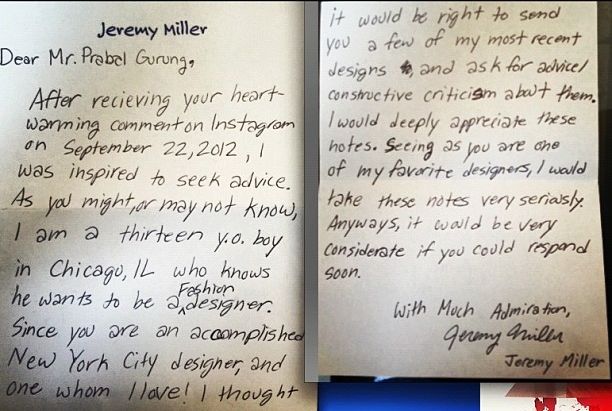 Jeremy Miller
Dear Mr. Prabal Gurung,
After recieving your heart-
warming comment on Instagram
on September 22, 2012, I
was inspired to seek advice.
As you might, or may not know,
I am a thirteen y.o. boy
in Chicago, IL who knows
he wants to be a Fashion designer.
Since you are an accomplished
New York City designer, and
one whom I love! I thought
it would be right to send
you a few of my most recent
designs, and ask for advice/
constructive criticism about them.
I would deeply appreciate these
notes. Seeing as you are one
of my favorite designers, I would
take these notes very seriously.
Anyways, it would be very
considerate if you could respond
soon.
With Much Admiration,
Jeremy Miller
Jeremy Miller